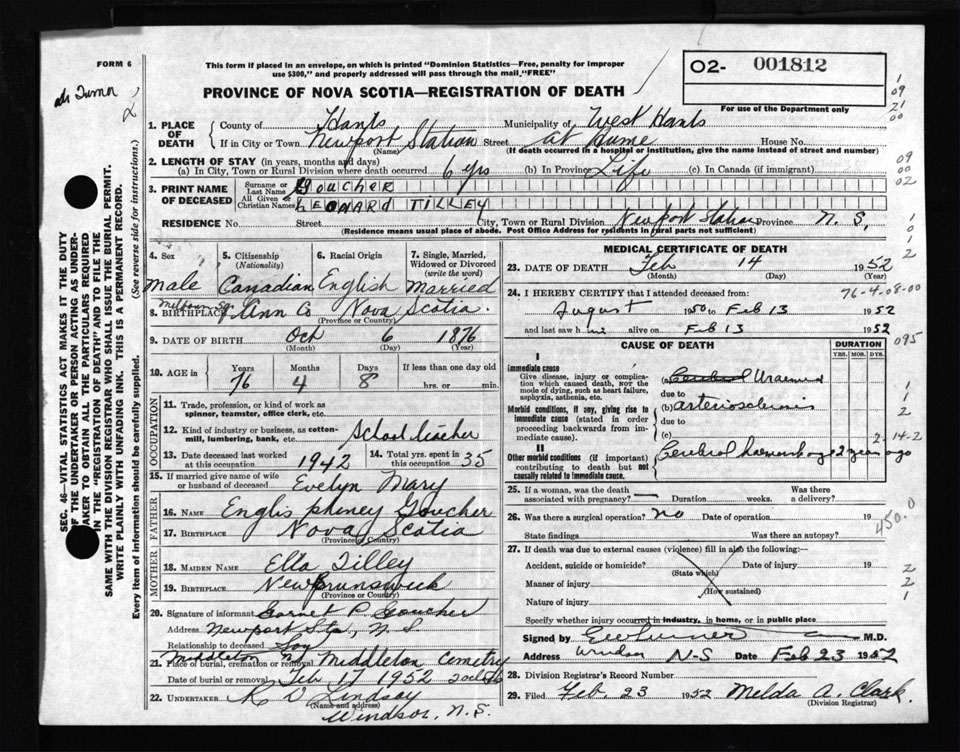 FORM 6
This form if placed in an envelope, on which is printed "Dominion Statistics—Free, penalty for improper
use $300," and properly addressed will pass through the mail "FREE"
PROVINCE OF NOVA SCOTIA—REGISTRATION OF DEATH
O2- 001812
For use of the Department only
1. PLACE OF DEATH
County of Hants Municipality of West Hants
If in City or Town Newport Station Street at Hume House No.
(Name) (If death occurred in a hospital or institution, give the name instead of street and number)
2. LENGTH OF STAY (in years, months and days)
(a) In City, Town or Rural Division where death occurred 6 yrs (b) In Province Life (c) In Canada (if immigrant)
3. PRINT NAME OF DECEASED
Surname or Last Name GOUCHER
All Given or Christian Names LEONARD TILLEY
RESIDENCE No. Street City, Town or Rural Division Newport Station Province N. S,
(Residence means usual place of abode. Post Office Address for residents in rural parts not sufficient)
4. Sex 5. Citizenship (Nationality) 6. Racial Origin 7. Single, Married, Widowed or Divorced (write the word)
male Canadian English Married
8. BIRTHPLACE Ann Co Nova Scotia.
(Province or Country)
9. DATE OF BIRTH Oct 6 1876
(Month) (Day) (Year)
10. AGE in Years Months Days If less than one day old
76 4 8 hrs. or min.
OCCUPATION
11. Trade, profession, or kind of work as spinner, teamster, office clerk, etc.
12. Kind of industry or business, as cotton-mill, lumbering, bank, etc. School teacher
13. Date deceased last worked at this occupation 1942 14. Total yrs. spent in this occupation 35
15. If married give name of wife or husband of deceased Evelyn Mary
FATHER
16. NAME Englis pheney Goucher
17. BIRTHPLACE Nova Scotia
(Province or Country)
MOTHER
18. MAIDEN NAME Ella Tilley
19. BIRTHPLACE New Brunswick
(Province or Country)
20. Signature of informant Garnet P Goucher
Address Newport Sta, N S
Relationship to deceased Son
21. Place of burial, cremation or removal Middleton NS Middleton Cemetry
Date of burial or removal Feb 17 1952
22. UNDERTAKER R V Lindsay
(Name and Address)
Windsor, N.S.
MEDICAL CERTIFICATE OF DEATH
23. DATE OF DEATH Feb 14 1952
(Month) (Day) (Year)
76-4-08-00
24. I HEREBY CERTIFY that I attended deceased from:
August 1950 to Feb 13 1952
and last saw him alive on Feb 13 1952
CAUSE OF DEATH DURATION
YRS. MOS. DYS.
I
Immediate cause
Give disease, injury or complication which caused death, NOT the mode of dying, such as heart failure, asphyxia, asthenia, etc.
(a) Cerebral Uraemia
due to
Morbid conditions, if any, giving rise to immediate cause (stated in order proceeding backwards from immediate cause).
(b) arteriosclerosis
due to
(c)
2-14-2
II
Other morbid conditions (if important) contributing to death but not causally related to immediate cause.
Cerebral haemorhage 2 years ago
25. If a woman, was the death associated with pregnancy? Duration weeks. Was there a delivery?
26. Was there a surgical operation? no Date of operation 19
State findings Was there an autopsy?
450.0
27. If death was due to external causes (violence) fill in also the following:—
Accident, suicide or homicide? Date of injury 19
(State which)
Manner of injury
(How sustained)
Nature of injury
Specify whether injury occurred in industry, in home, or in public place
Signed by M.D.
Address Windsor N-S Date Feb 23 1952
28. Division Registrar's Record Number
29. Filed Feb. 23 1952 Melda A. Clark.
(Division Registrar)
SEC. 46—VITAL STATISTICS ACT MAKES IT THE DUTY
OF THE UNDERTAKER OR PERSON ACTING AS UNDER-
TAKER TO OBTAIN ALL THE PARTICULARS REQUIRED
IN THE "REGISTRATION OF DEATH" AND TO FILE THE
SAME WITH THE DIVISION REGISTRAR WHO SHALL ISSUE THE BURIAL PERMIT.
WRITE PLAINLY WITH UNFADING INK. THIS IS A PERMANENT RECORD.
Every item of information should be carefully supplied. (See reverse side for instructions.)
09
21
00
09
00
02
095